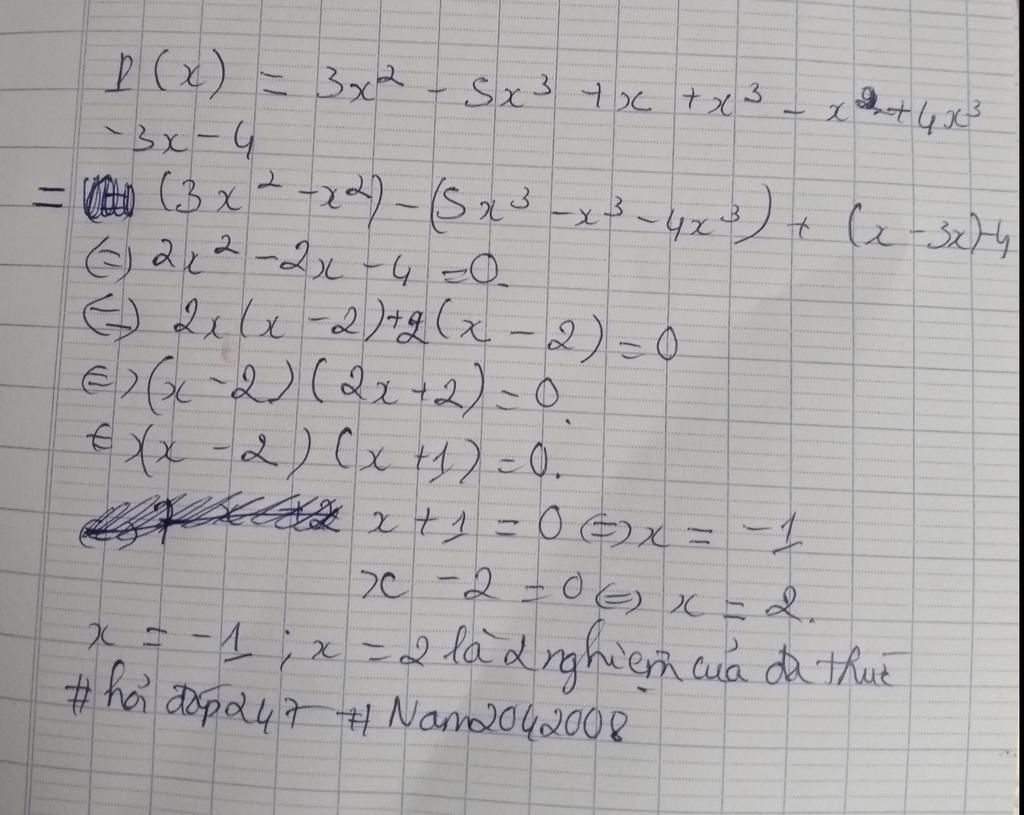 P(x) = 3x² - 5x³ + x + x³ - x² + 4x³
-3x - 4
= (3x² - x²) - (5x³ - x³ - 4x³) + (x - 3x) - 4
(=) 2x² - 2x - 4 = 0.
(=) 2x(x - 2) + 2(x - 2) = 0
(=) (x - 2)(2x + 2) = 0.
(=) (x - 2)(x + 1) = 0.
x + 1 = 0 (=) x = -1
x - 2 = 0 (=) x = 2.
x = -1 ; x = 2 là 2 nghiệm của đa thức
# hỏi đáp 247 - # Nam2042008